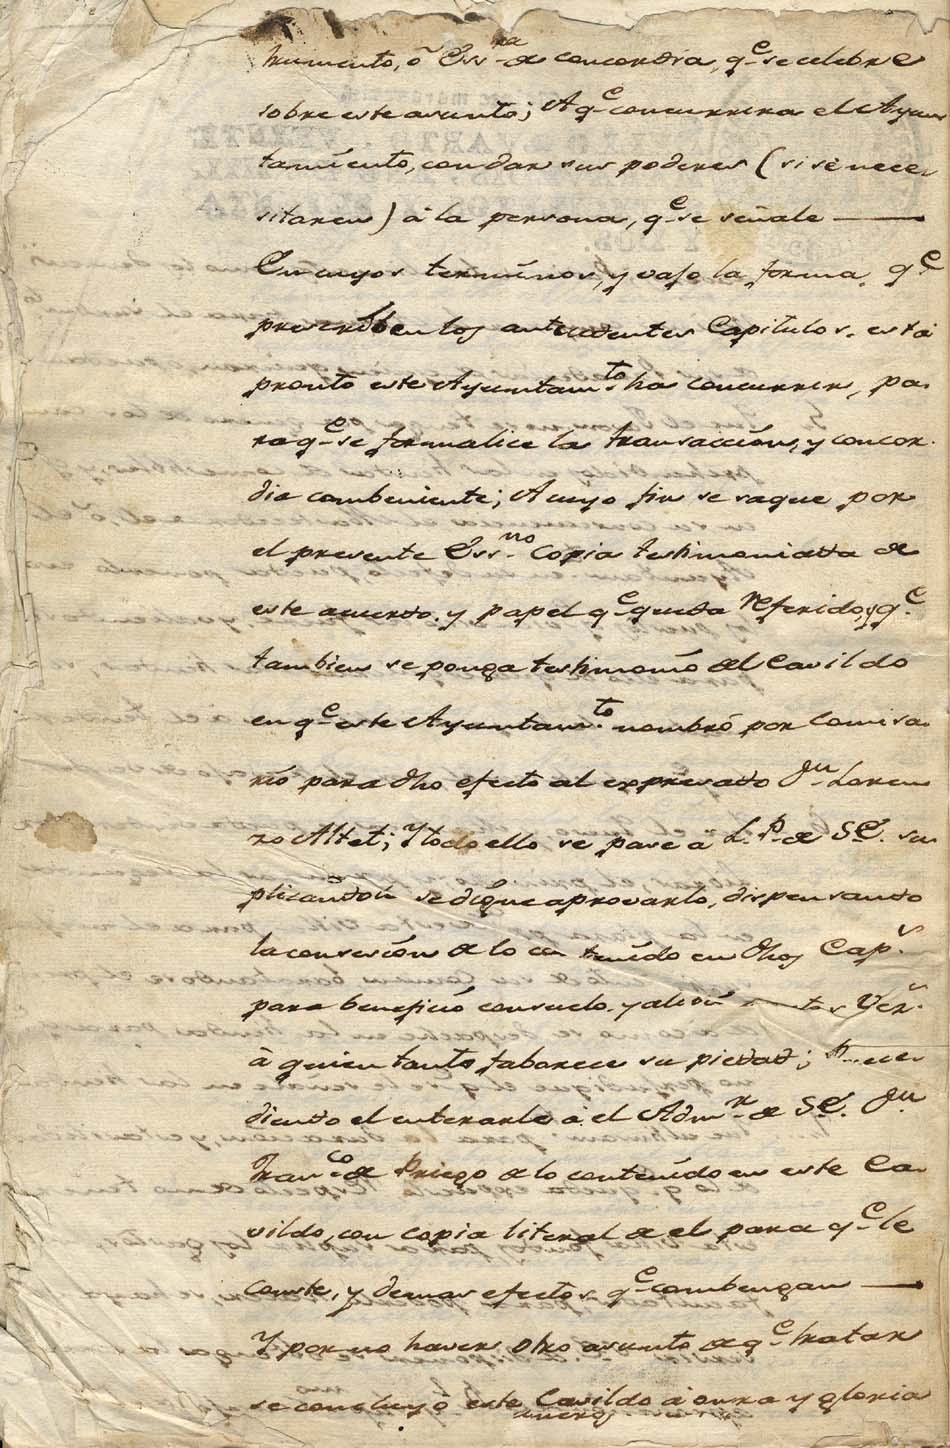 trumento, ô Essra de concordia, qe se celebre
sobre este asunto; A qe concurrira el Ayun
tamiento, con dar sus poderes (si se nece
sitaren) â la persona, qe se señale
En cuyos terminos, y vajo la forma, qe
prescriben los antecedentes Capitulos, està
pronto este Ayuntamto ha concurrir, pa
ra qe se formalice la transaccion, y concor
dia combeniente; A cuyo fin se saque por
el presente Essno Copia testimoniada de
este acuerdo, y papel qe queda referido, y qe
tambien se ponga testimonio del Cavildo
en qe este Ayuntamto nombró por Comisa
rio para dho efecto al expresado Dn Loren
zo Altet; Y todo ello se pase â L. P. de S.E. su
plicandole se digne aprovarlo, dispensando
la consesion de lo contenido en dhos Caps
para beneficio consuelo, y alivio estos Vezs
â quien tanto faborece su piedad;
diendo el enterarle â el Admr de S.E. Dn
Franco de Priego de lo contenido en este Ca
vildo, con copia literal de el para qe le
conste, y demas efectos qe combengan
Y por no haver otro asunto de qe tratar
se concluyó este Cavildo â onrra y gloria